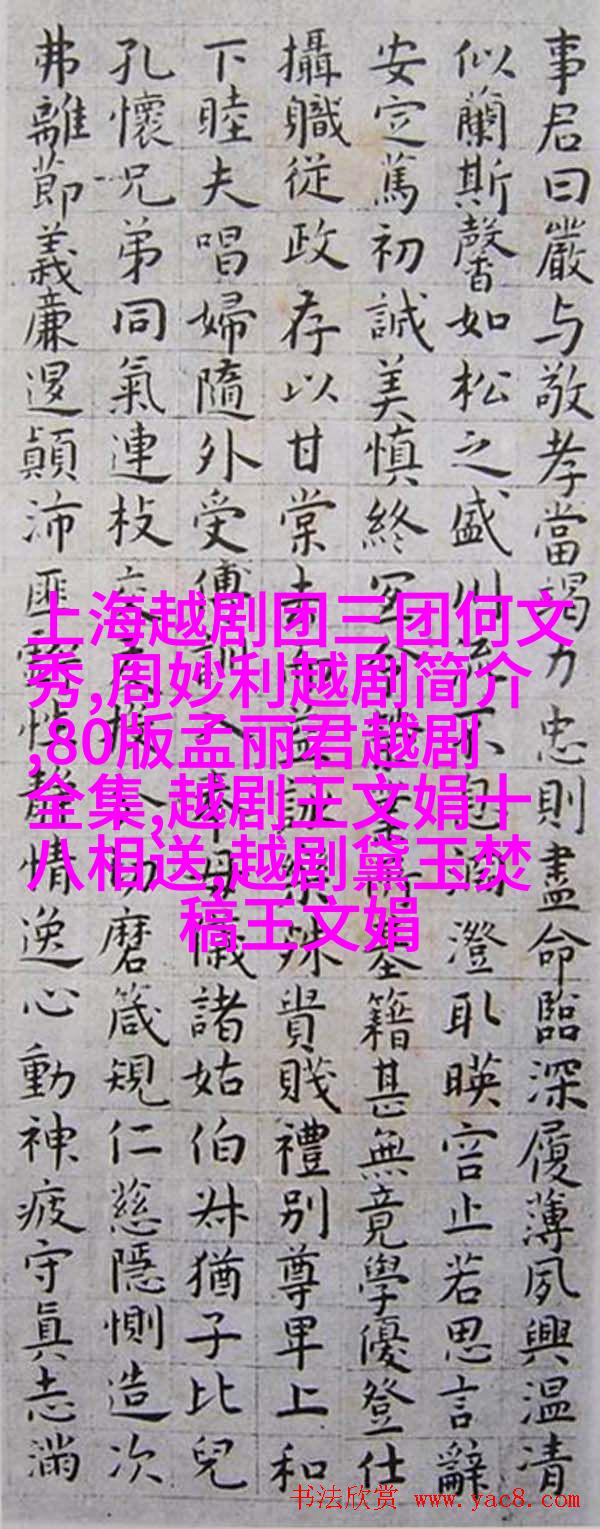 事君曰嚴与敬孝當竭力忠則盡命臨深履薄夙興温清
似蘭斯馨如松之盛川流不息淵澄取暎容止若思言辭
安定篤初誠美慎終宜令榮業所基籍甚無竟學優登仕
攝職從政存以甘棠去而益詠樂殊貴賤禮別尊卑上和
下睦夫唱婦隨外受傅訓入奉母儀諸姑伯叔猶子比兒
孔懷兄弟同氣連枝交友投分切磨箴規仁慈隱惻造次
弗離節義廉退顛沛匪虧性静情逸心動神疲守真志滿
上海越剧团三团何文
秀,周妙利越剧简介
,80版孟丽君越剧
全集,越剧王文娟十
八相送,越剧黛玉焚
稿王文娟
书法欣赏 www.yac8.com